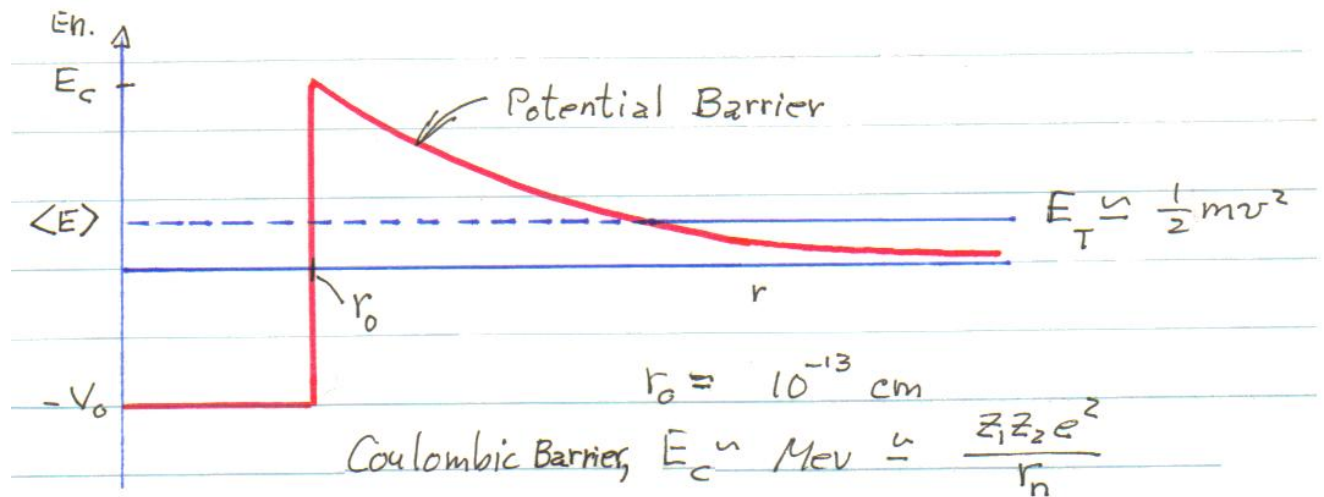 En.
E_c
Potential Barrier
<E>
E_T ≃ ½mv²
r_0
r
-V_0
r_0 = 10^-13 cm
Coulombic Barrier, E_c ~ Mev ≃ Z_1Z_2e²/r_n